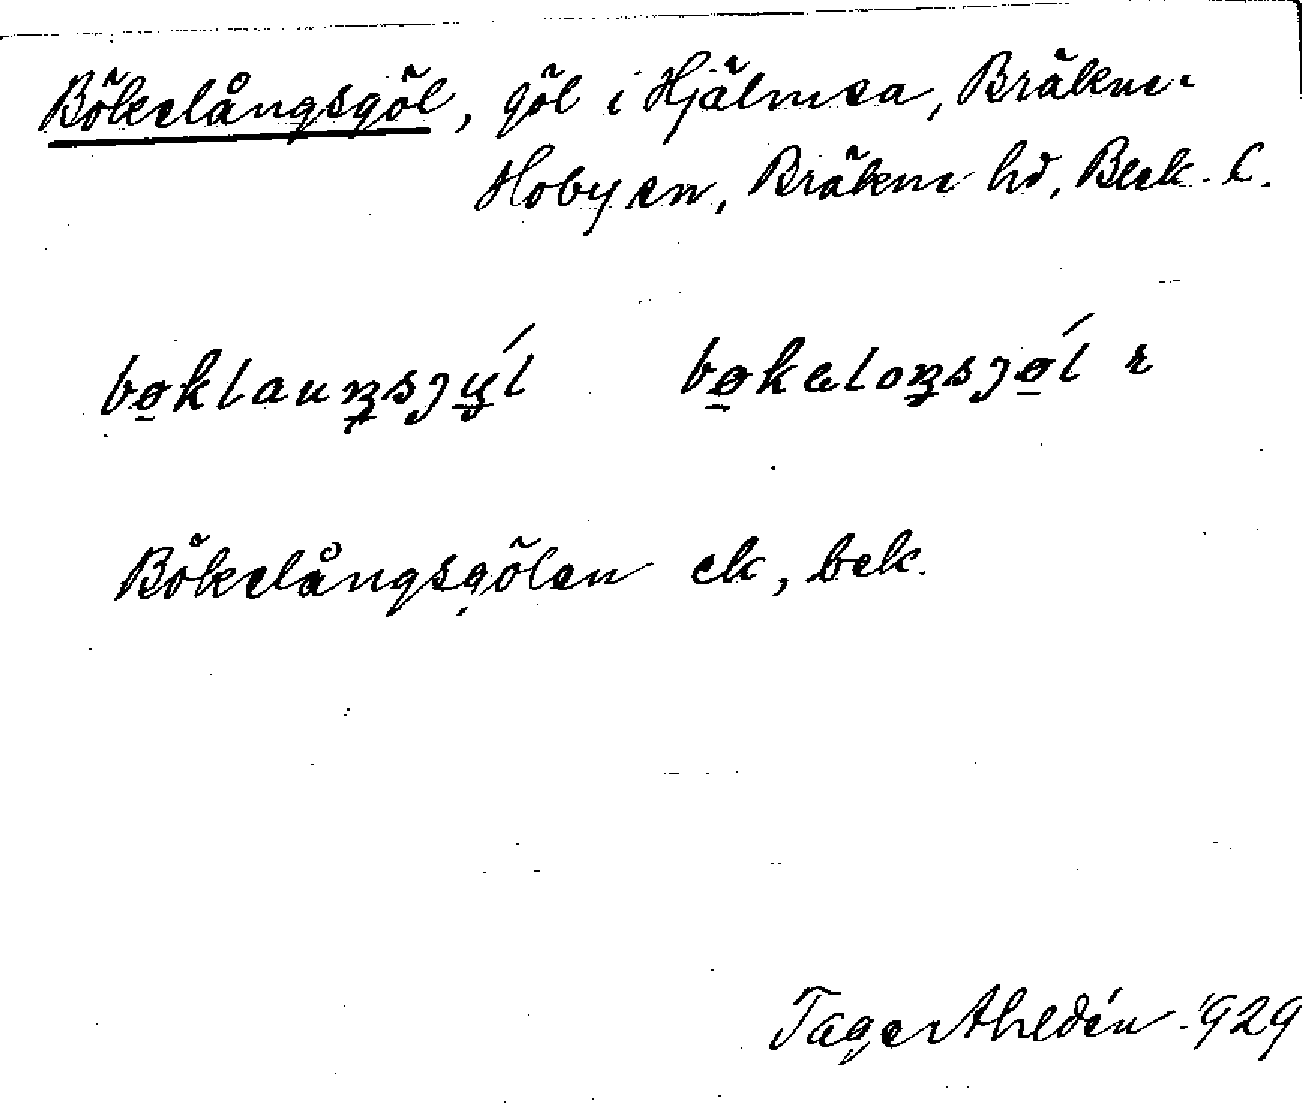 Bökelångsgöl, göl i Hjälmsa, Bräkne-
Hoby sn, Bräkne hd, Blek. l.
bøklauŋsjyĺ bøkəloŋsjøĺ r
Bökelångsgölen ek, bek.
Tage Ahldén 1929